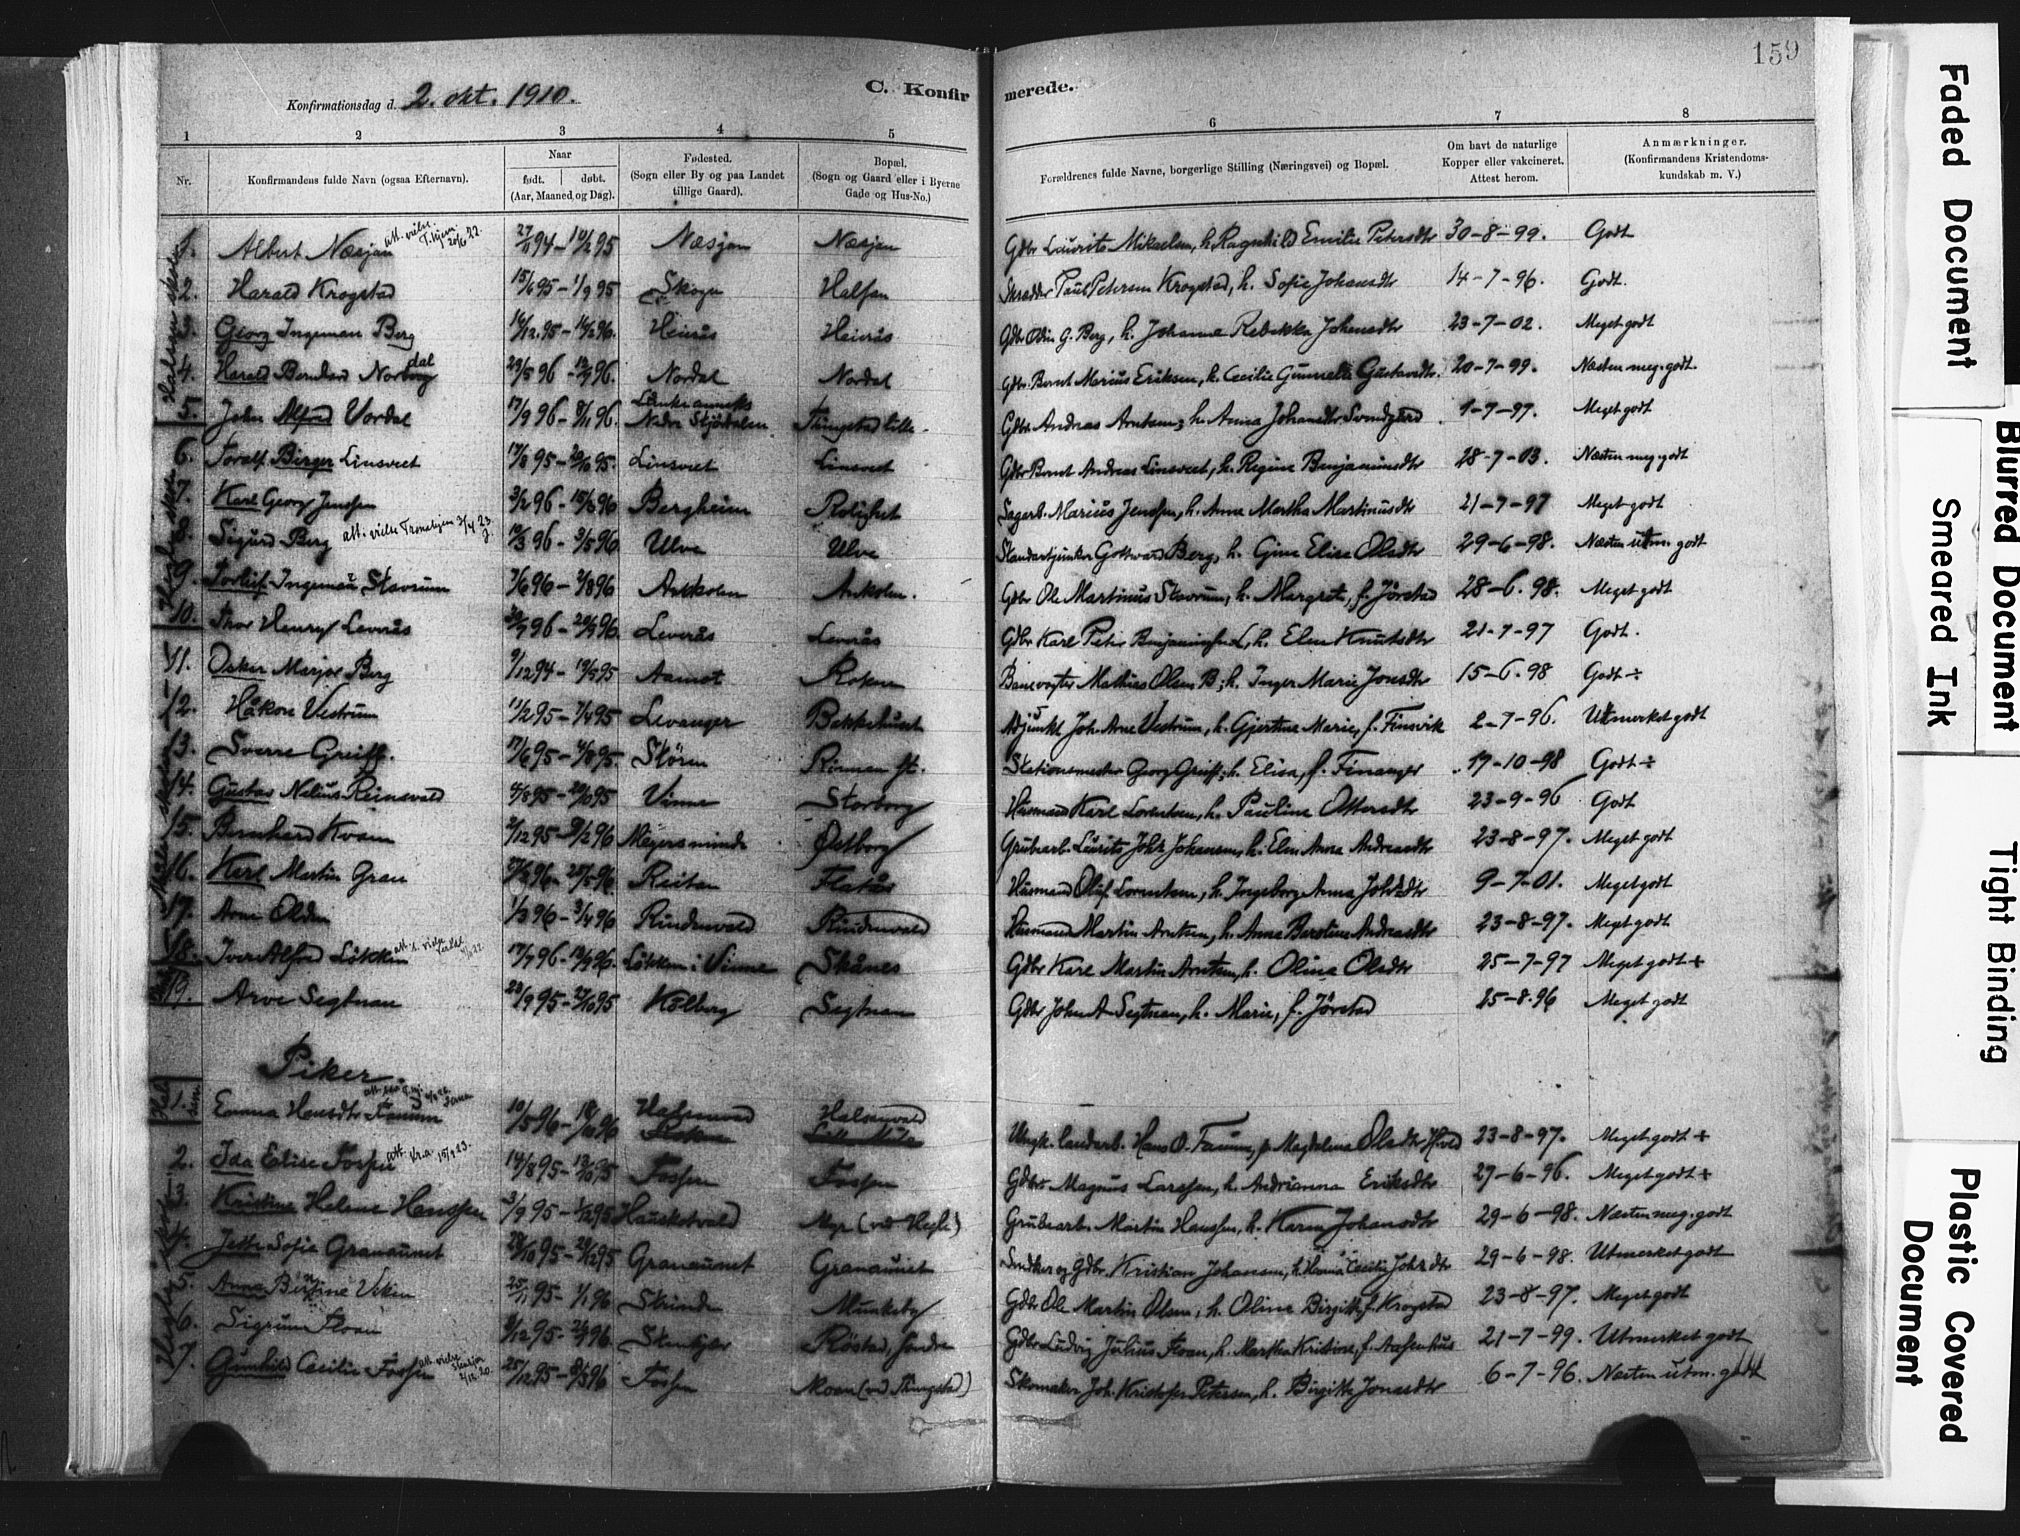 159
Konfirmationsdag d. 2. okt. 1910.
C. Konfirmerede.
1 2 3 4 5 6 7 8
Nr.
Konfirmandens fulde Navn (ogsaa Efternavn).
Naar
født. døbt.
(Aar, Maaned og Dag).
Fødested.
(Sogn eller By og paa Landet
tillige Gaard).
Bopæl.
(Sogn og Gaard eller i Byerne
Gade og Hus-No.)
Forældrenes fulde Navne, borgerlige Stilling (Næringsvei) og Bopæl.
Om havt de naturlige
Kopper eller vakcineret.
Attest herom.
Anmærkninger.
(Konfirmandens Kristendoms-
kundskab m. V.)
1. Albert Næsjan 27/11 94 – 10/2 95 Næsjan Næsjan Gdbr Laurits Mikaelsen, h. Ragnhild Emilie Petersdtr 30-8-99. Godt
2. Harald Krogstad 15/6 95 – 1/9 95 Skogn Halsan Skrædder Paul Petersen Krogstad, h. Sofie Johansdtr 14-7-96. Godt.
3. Georg Ingeman Berg 16/12 95 – 16/2 96. Heirås Heirås Gdbr Odin G. Berg, h. Johanna Rebekka Johansdtr 23-7-02. Meget godt
4. Harald Bernhard Nordal 29/5 96 – 96. Nordal Nordal Gdbr. Bernt Marius Eriksen, h. Cecilie Gunnelie Gustavsdtr. 20-7-99. Næsten meg. godt.
5. John Alfred Vordal 17/9 96 – 8/11 96. Lånke anneks Nedre Stjørdalen Tingstad lille Gdbr Andreas Arntsen, h. Anna Johansdtr 1-7-97. Meget godt
6. Toralf Birger Linsveet 17/8 95 – 20/10 95. Linsveet Linsveet Gdbr Bernt Andreas Linsveet, h. Regine Benjaminsdtr 28-7-03. Næsten meg godt
7. Karl Georg Jenssen 3/2 96 – 15/3 96 Bergheim Rolighet Sagarb. Marius Jenssen, h. Anna Martha Martinusdtr 21-7-97 Meget godt
8. Sigurd Berg 10/3 96 – 3/5 96 Ulve Ulve Standartjunker Gottvard Berg, h. Gina Elisa Olsdtr 29-6-98. Næsten utm. godt
9. Torleif Ingemar Stavrum 7/6 96 – 2/8 96 Ankolen. Gdbr Ole Martinus Stavrum, h. Margrete, f. Jørstad 28-6-98. Meget godt
10. Thor Henry Leverås 96 – 20/9 96 Leverås Leverås Gdbr Karl Peter Benjaminsen L, h. Elen Knutsdtr 21-7-97 Godt.
11. Oskar Marjel Berg 9/12 94 – 19/5 95 Aamot Banevogter Mathias Olsen B, h. Inger Marie Jonsdtr 15-6-98 Godt ÷
12. Håkon Vestrum 11/2 95 – 7/4 95 Levanger Bakkehuset Adjunkt Joh. Arne Vestrum, h. Gjertine Marie, f. Finsvik 2-7-96. Utmerket godt
13. Sverre Greiff. 17/6 95 – 4/8 95 Støren Rinnan st. Stationsmester Georg Greiff, h. Elisa, f. Finanger 17-10-98 Godt ÷
14. Gustav Nelius Reinsvald 4/8 95 – 20/10 95 Vinne Storborg Husmand Karl Lorentsen, h. Pauline Ottersdtr 23-9-96 Godt
15. Bernhard Kvam 2/12 95 – 9/2 96 Meyersminde Østborg Grubearb. Laurits Johs Johansen, h. Elen Anna Andreasdtr 23-8-97. Meget godt
16. Karl Martin Grau 96 – 25/5 96 Reitan Flatås Husmand Oluf Lorentsen, h. Ingeborg Anna Johsdtr 9-7-01. Meget godt
17. Arne Olden 1/3 96 – 3/4 96 Rindsvald Rindsvald Husmand Martin Arntsen, h. Anna Berntine Andreasdtr 23-8-97. Meget godt
18. Iver Alfred Løkken 17/7 96 – 13/9 96. Løkken i Vinne Skånes Gdbr Karl Martin Arntsen, h. Olina Olsdtr 25-7-97 Meget godt +
19. Arve Segtnan 28/9 95 – 27/10 95 Kolberg Segtnan Gdbr John A. Segtnan, h. Marie, f. Jørstad 25-8-96 Meget godt
Piker.
1. Emma Hansdtr 10/5 96 – 96 Halsanvald Halsanvald Ungk. landarb. Hans O. p. Magdalena Olsdtr 23-8-97. Meget godt +
2. Ida Elise Fossen 14/8 95 – 13/10 95 Fossen Fossen Gdbr Magnus Larssen, h. Andrianna Eriksdtr 27-6-96. Meget godt +
3. Kristine Helene Hanssen 3/9 95 – 1/12 95 Hauskotvald Myr (ved Hegle) Grubearb. Martin Hanssen, h. Karen Johansdtr 29-6-98. Næsten meg. godt
4. Jette Sofie Granaunet 28/10 95 – 26/12 95 Granaunet Granaunet Snedker og Gdbr. Kristian Johansen, h. Hanna Cecilie Johsdtr 29-6-98. Utmerket godt
5. Anna Bertine Viken 25/11 95 – 1/1 96 Skrinde Munkeby Gdbr Ole Martin Olsen, h. Oline Birgitte f. Krogstad 23-8-97. Meget godt
6. Sigrun Floan 8/12 95 – 2/2 96 Røstad, søndre Gdbr Ludvig Julius Floan, h. Martha Kristine, f. Aasenhus 21-7-99. Utmerket godt
7. Gunhild Cecilie Fossen 25/12 95 – 8/3 96 Fossen Moan (ved Tingstad) Skomaker Joh. Kristofer Petersen, h. Birgitte Jonasdtr 6-7-96. Næsten utm. godt
Faded Document
Blurred Document
Smeared Ink
Tight Binding
Plastic Covered
Document